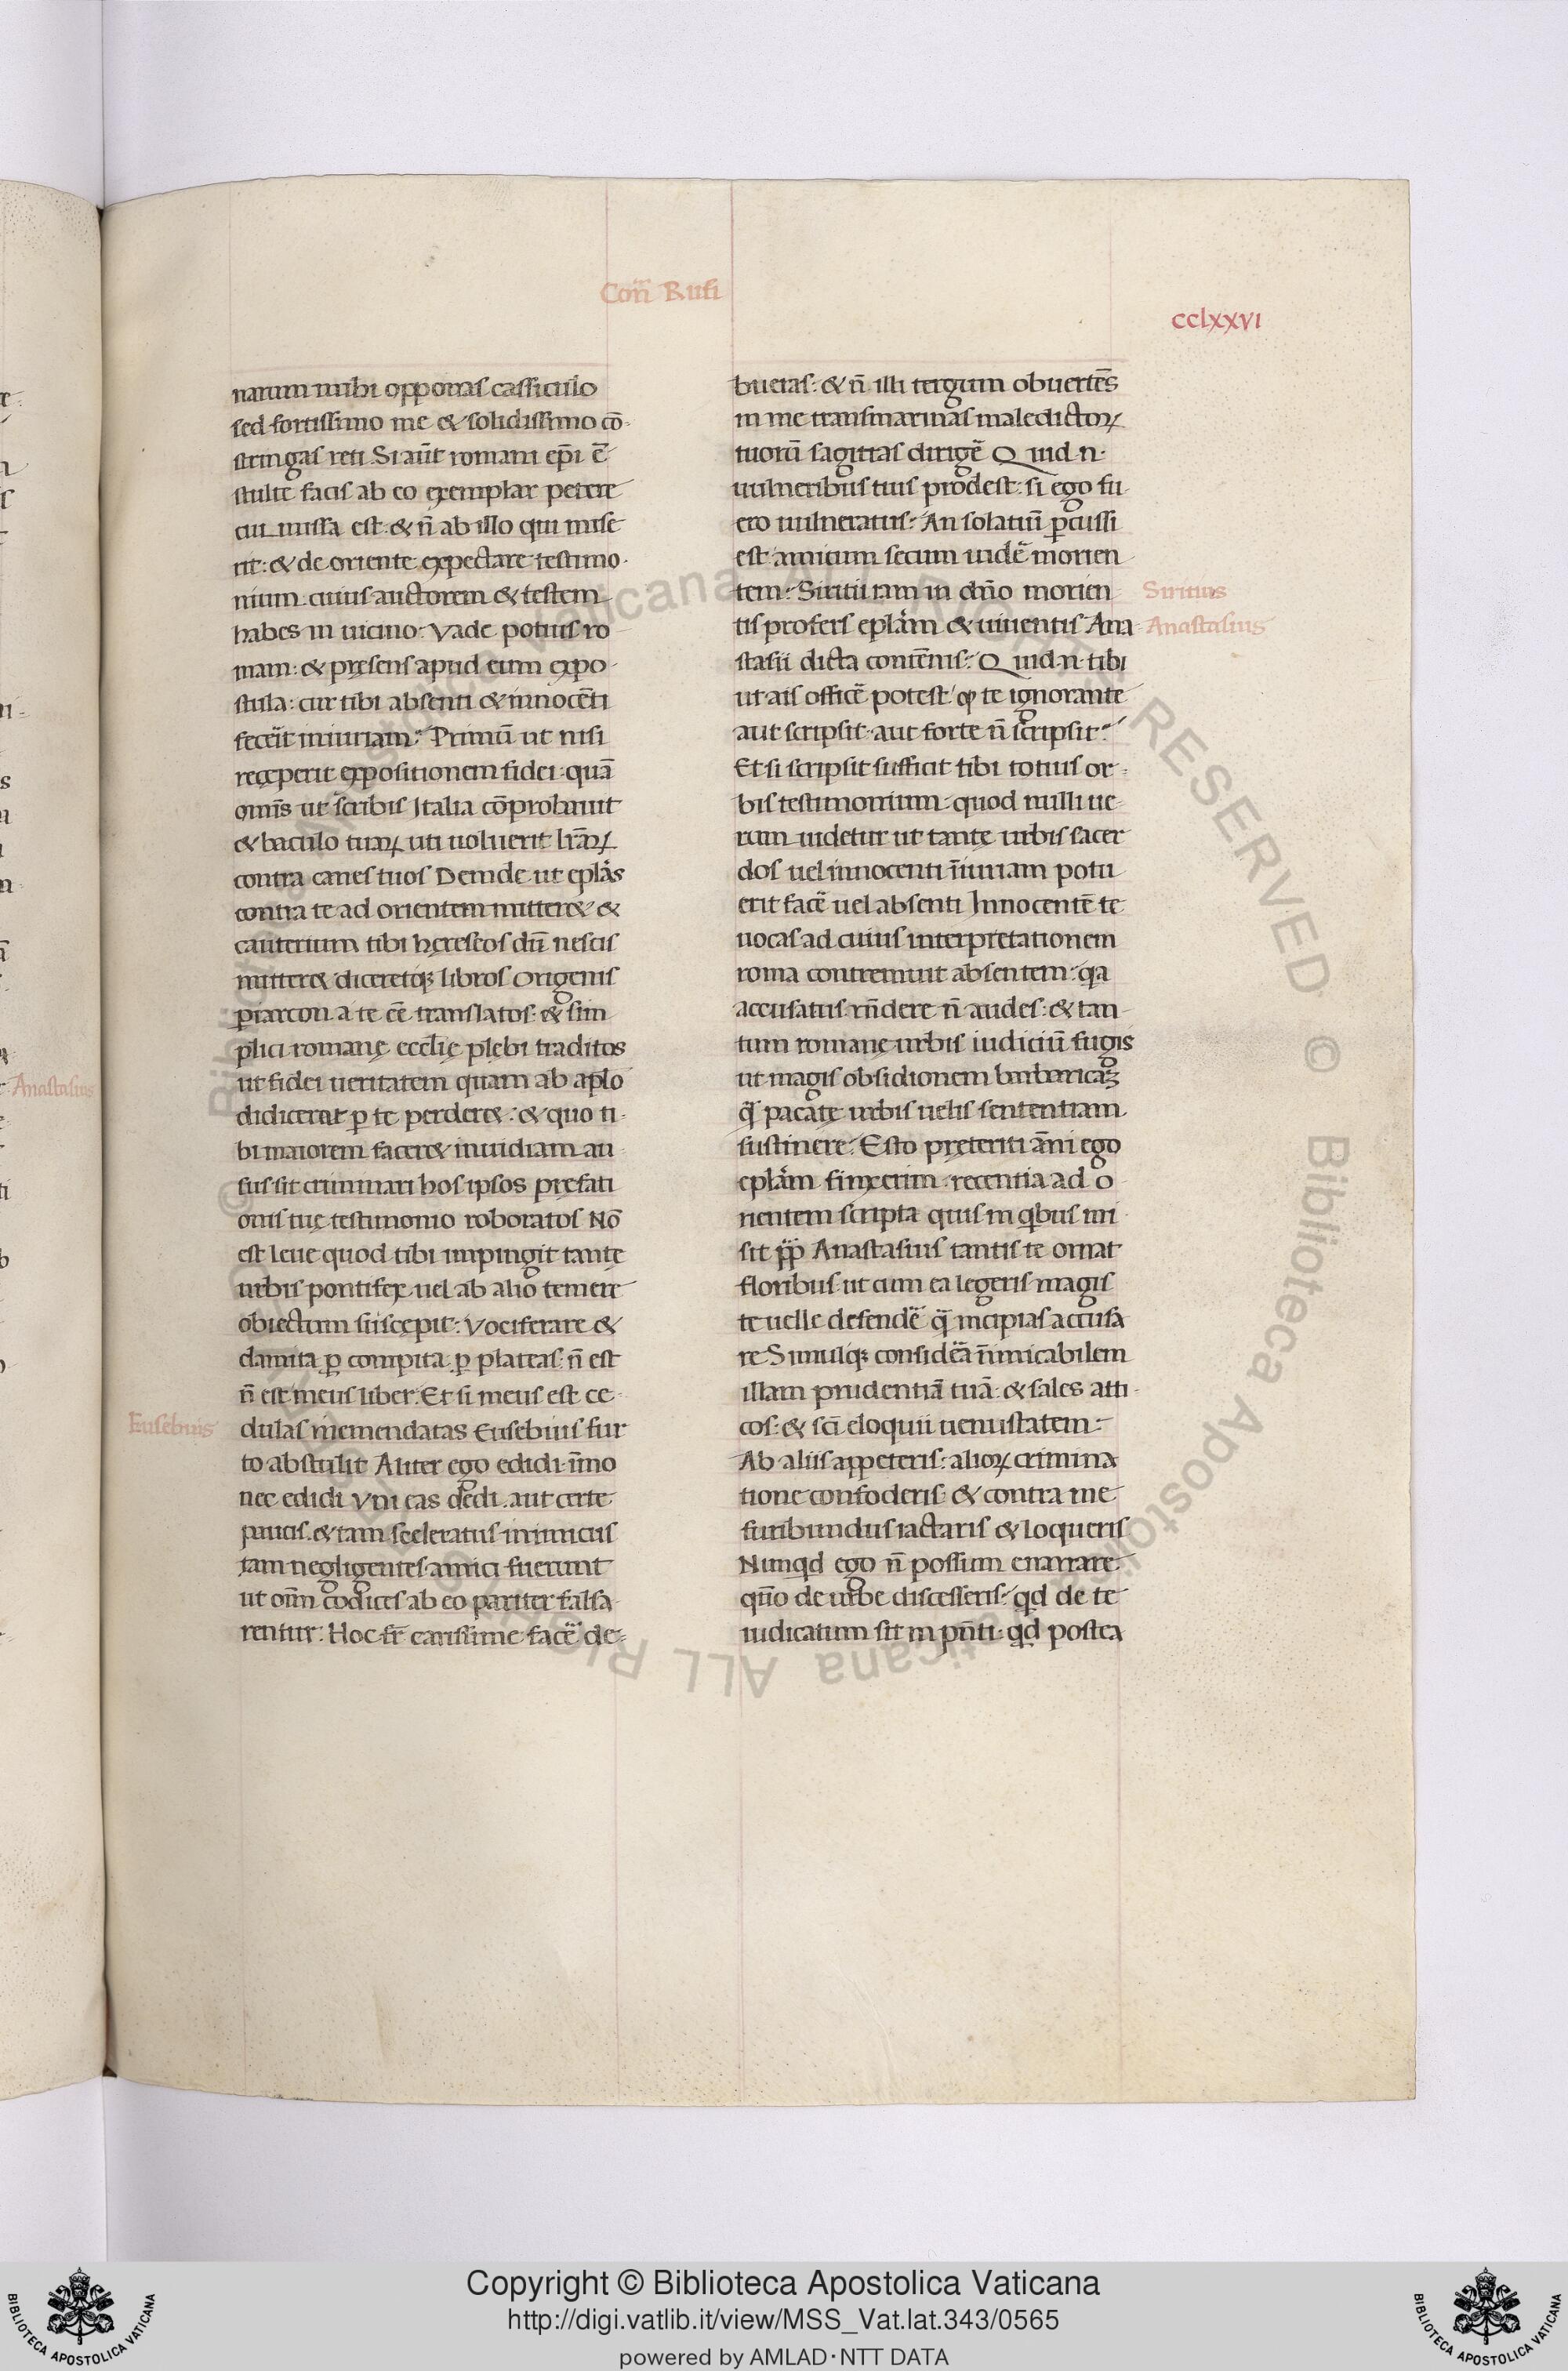 Cont̄ Rufi
cclxxvi
narum mihi opponas cassiculo
sed fortissimo me & solidissimo cō-
stringas reti. Si aūt romani ep̄i ē
stulte facis ab eo exemplar petere
cui missa est. & n̄ ab illo qui mise
rit: & de oriente expectare testimo-
nium cuius auctorem & testem
habes in uicino. Vade potius ro
mam: & pręsens apud eum expo-
stula: cur tibi absenti & innocēti
fecēit iniuriam? Primū ut nisi
reçeperit expositionem fidei. quā
omīs ut scribis Italia cōprobauit
& baculo tuaꝝ uti uoluerit l̄raꝝ
contra canes tuos Deinde ut ep̄las
contra te ad orientem mitter& &
cauterium tibi hęreseos dū nescis
mitter& diceretqꝫ libros Origenis
periarcon a te eē translatos. & sim
plici romanę ecclię plebi traditos
ut fidei ueritatem quam ab ap̄lo
didicerat ꝑ te perder&: & quo ti-
bi maiorem facer& inuidiam au
sus sit criminari hos ipsos pręfati
onis tuę testimonio roboratos Nō
est leue quod tibi impingit tantę
urbis pontifex uel ab alio temere
obiectum suscepit: Vociferare &
clamita ꝑ compita ꝑ plateas. n̄ est
n̄ est meus liber. Et si meus est ce-
Eusebius
dulas inemendatas Eusebius fur
to abstulit Aliter ego edidi. īmo
nec edidi Vni eas dedi. aut certe
paucis. & tam sceleratus inimicus
tam negligentes amici fuerunt
ut om̄n codices ab eo pariter falsa
rentur. Hoc fr̄ carissime facē de-
bueras: & n̄ illi tergum obuertēs
in me transmarinas maledictoꝝ
tuorū sagittas dirigē Quid n.
uulneribus tuis prodest. si ego fu-
ero uulneratus? An solatiū ꝑcussi
est amicum secum uidē morien
tem? Siricii iam in dn̄o morien
Siricius
tis profers ep̄lam & uiuentis Ana
Anastasius
stasii dicta contēnis? Quid n. tibi
ut ais officē potest. qp te ignorante
aut scripsit. aut forte n̄ scripsit?
Et si scripsit sufficit tibi totius or-
bis testimonium. quod nulli ue-
rum uidetur ut tantę urbis sacer
dos uel innocenti īiuriam potu
erit facē uel absenti Innocentē te
uocas ad cuius interpretationem
roma contremuit absentem. qa
accusatus rn̄dere n̄ audes. & tan-
tum romanę urbis iudiciū fugis
ut magis obsidionem barbaricaꝫ
q̄ pacatę urbis uelis sententiam
sustinere. Esto pręteriti āni ego
ep̄lam finxerim. recentia ad o
rientem scripta quis in qbus mi
sit pp̄ Anastasius tantis te ornat
floribus ut cum ea legeris magis
te uelle defendē q̄ incipias accusa
re Simulqꝫ considēa īnimicabilem
illam prudentiā tuā. & sales atti-
cos. & scī eloquii uenustatem.
Ab aliis appeteris. alioꝝ crimina
tione confoderis. & contra me
furibundus iactaris & loqueris
Nunqd ego n̄ possum enarrare
qn̄o de urbe discesseris? qd de te
iudicatum sit in pn̄ti. qd postea
Anastasius
Copyright © Biblioteca Apostolica Vaticana
http://digi.vatlib.it/view/MSS_Vat.lat.343/0565
powered by AMLAD·NTT DATA
BIBLIOTECA APOSTOLICA VATICANA
BIBLIOTECA APOSTOLICA VATICANA